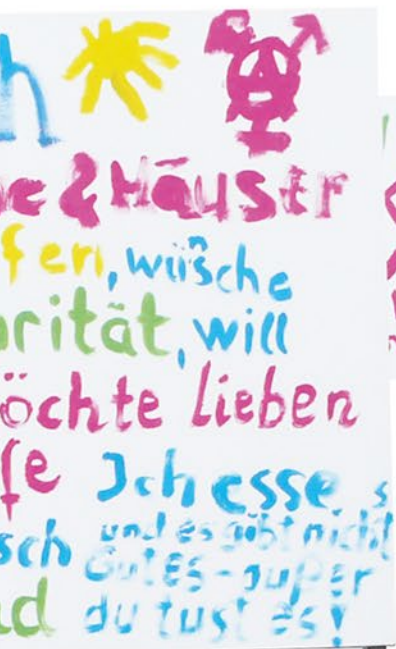 h
e & Häuser
fen, wünsche
arität, will
öchte lieben
fe Ich esse
sch und es gibt nicht
Gutes - auper
d du tust es!